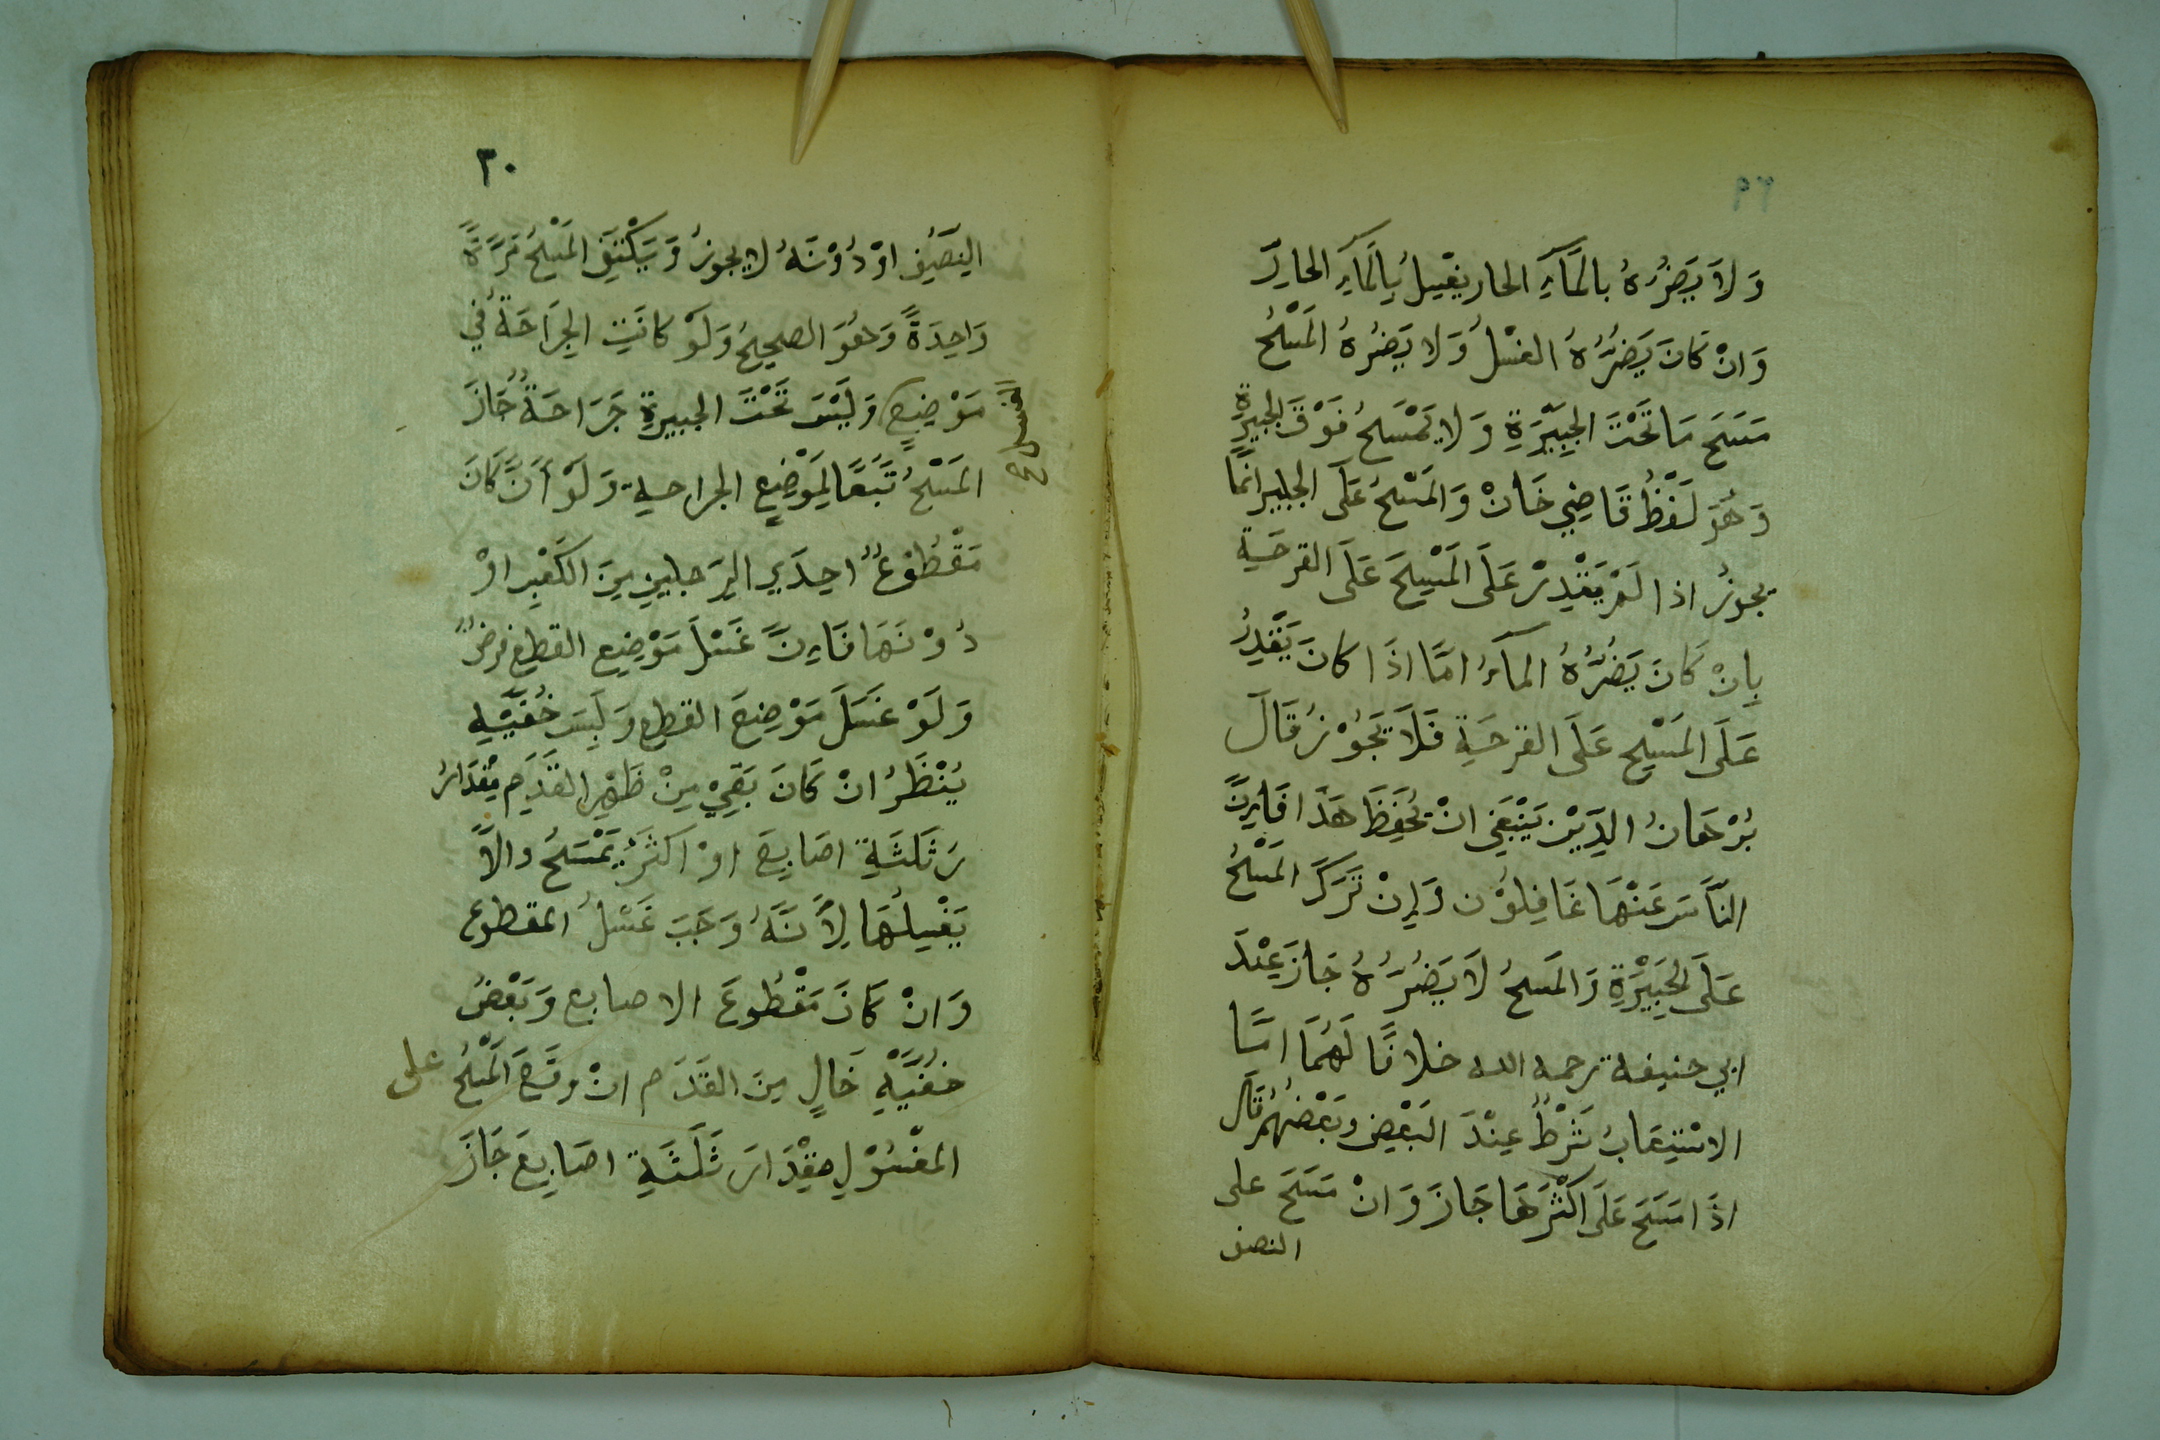 وَلاَ يَضُرُّهُ بالمَآءِ الحار يغْسِلُ بِالمَآءِ الحارِّ
وَانْ كَانَ يَضُرُّهُ الغسْلُ وَلا يَضُرُهُ المَسْحُ
مَسَحَ مَا تَحْتَ الجَبِيْرَةِ وَلا يَمْسَحُ فَوْقَ الجبيرَة
وَهُوَ لَفْظُ قَاضِي خَانْ وَالمَسْحُ عَلَى الجبيرانمَّا
يجوزُ اذا لَمْ يَقْدِرْ عَلَى المَسْحَ عَلَى القرحَةِ
بِانْ كَانَ يَضُرُّهُ المآءُ امَّا اذَا كانَ يَقْدِرُ
عَلَى المَسْحِ عَلَى القرحَةِ فَلاَ تَجُوْزُ قَالَ
بُرْهَانُ الدِّيْن يَنْبَغِي انْ يُحْفَظَ هَذَا فَاِنَّ
النَّاسَ عَنْهَا غَافِلُوْن وَاِنْ تَرَكَ المَسْحُ
عَلَى الجَبِيْرَةِ وَالمَسحُ لاَ يَضُرُّهُ جَازَ عِنْدَ
ابي حنيفة رحمه الله خلافًا لَهُمَا امَّا
الاسْتِيْعَابُ شَرْطٌ عِنْدَ البَعْضِ وبَعْضُهُمْ قَالَ
اذَا مَسَحَ عَلَى اكْثَرَهَا جَازَ وَانْ مَسَحَ على
النصف
٣٠
النِصَفِ اوْ دُوْنَهُ لا يجوزُ وَيَكْتَفِى المَسْحُ مَرَّةً
وَاحِدَةً وَهُوَ الصحِيحُ وَلَوْ كانَتِ الجِرَاحَةُ في
مَوْضِعٍ وَلَيْسَ تَحْتَ الجبيرةِ جَرَاحَةٌ جَازَ
المَسْحُ تَبَعًا لِمَوْضِعِ الجراحةِ وَلَوْ اَنَّ كَانَ
مَقْطُوْعٌ احِدَي الرِجلينِ مِنَ الكَعْبِ اوْ
دُوْنَهَا فَاِنَّ غَسْلَ مَوْضِعِ القطعِ فرضٌ
وَلَوْ غسَلَ مَوْضِعَ القطعِ وَلَبِسَ خُفَّيْهِ
يُنْظَرُ انْ كَانَ بَقِيْ مِنْ ظَهْرِ القَدَمِ مِقْدَارُ
ثَلثَةِ اصَابِعَ اوْ اكثَرُ يَمْسَحُ والاَّ
يَغْسِلُهَا لِاَنَّهُ وَجَبَ غَسْلُ المقطوع
وَانْ كَانَ مَقْطُوعَ الاصابع وَبَعْضُ
خُفَّيْهِ خَالٍ مِنَ القدَمِ انْ وقَعَ المَسْحُ على
المغْسُوْلِ مِقْدَارَ ثَلثَةِ اصَابِعَ جَازَ